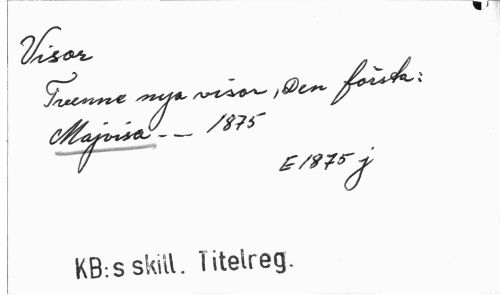 Visor
Tvenne nya visor, Den första:
Majvisa - — 1875
E 1875 j
KB:s skill. Titelreg.